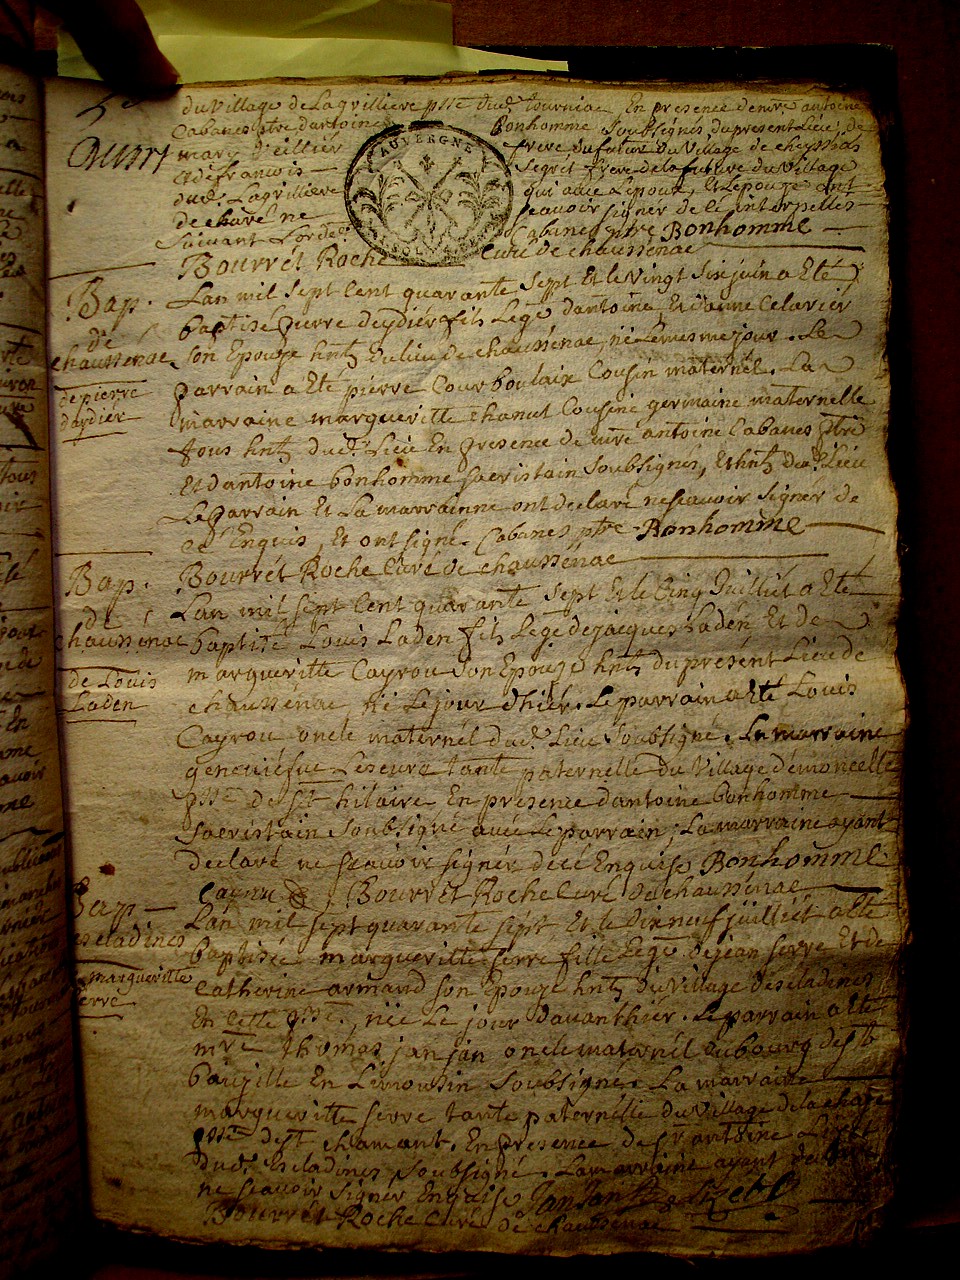 du Village de Lagrilliere psse dud. tourniac En presence de mre antoine
Cabanes ptre dantoine Bonhomme Soubsignés du present Lieu, de
AUVERGNE
frere du futur du Village de cheyssas
et de francois Segrét frere de la future du Village
dud. Lagrilliere qui avec L'epoux, et L'epouze ont
de ne sçavoir signér de cé interpellés
Suivant L'orde. Cabanes ptre Bonhomme
Bourrét Roche Curé de chaussenac
Bap.
de
chaussénac
de pierre
daydier
L'an mil sept Cent quarante sept Et le vingt six juin a Eté
baptisé pierre deydiér fils Legé d'antoine, Et Jeanne Celarier
son Epouze hnts du lieu de chaussénac, né le mesme jour. Le
parrain a Eté pierre Courboulaix Cousin maternél. La
marraine margueritte chanut Cousine germaine maternelle
tous hnts dud. Lieu En presence de mre antoine Cabanes ptre
Et d'antoine bonhomme sacristain soubsignés, Et hnts dud. Lieu
Le parrain Et La marrainne ont declaré ne scavoir signér de
cé Enquis, Et ont signé. Cabanes ptre Bonhomme
Bourrét Roche Curé de chaussénac
Bap.
de
chaussénac
de Louis
Laden
L'an mil sept Cent quarante sept Et le Cinq Juilliét a Eté
baptisé Louis Laden fils Legé de jacques Ladén Et de
margueritte Cayrou son Epouze hnts du présent Lieu de
chaussénac, né Le jour d'hiér. Le parrain a Eté Louis
Cayrou oncle maternél dud. Lieu soubsigné. La marraine
geneviefve Leseure tante paternelle du Village d'emoncelle
psse de st hilaire En presence d'antoine bonhomme
sacristain soubsigné avec Le parrain, La marraine ayant
declaré ne scavoir signér de cé Enquise Bonhomme
Cayrou Bourrét Roche Curé de chaussénac
Bap
Escladines
marguerille
serre
L'an mil sept quarante sépt Et le dix neuf juilliét a Eté
baptisée marguerille serre fille Legé de jean serre Et de
Catherine armand son Epouze hnts du Village d'escladines
En cette psse, née Le jour d'avanthiér. Le parrain a Eté
mre thomas janjan oncle maternél du bourg de st
baujille En Limousin soubsigné. La marraine
marguerille serre tante paternélle du Village de la
psse de st chamant. En presence de sr antoine Lizet
dud. Escladines soubsigné. La marraine ayant declaré
ne scavoir signér Enquise JanJan Lizet
Bourrét Roche Curé de chaussenac